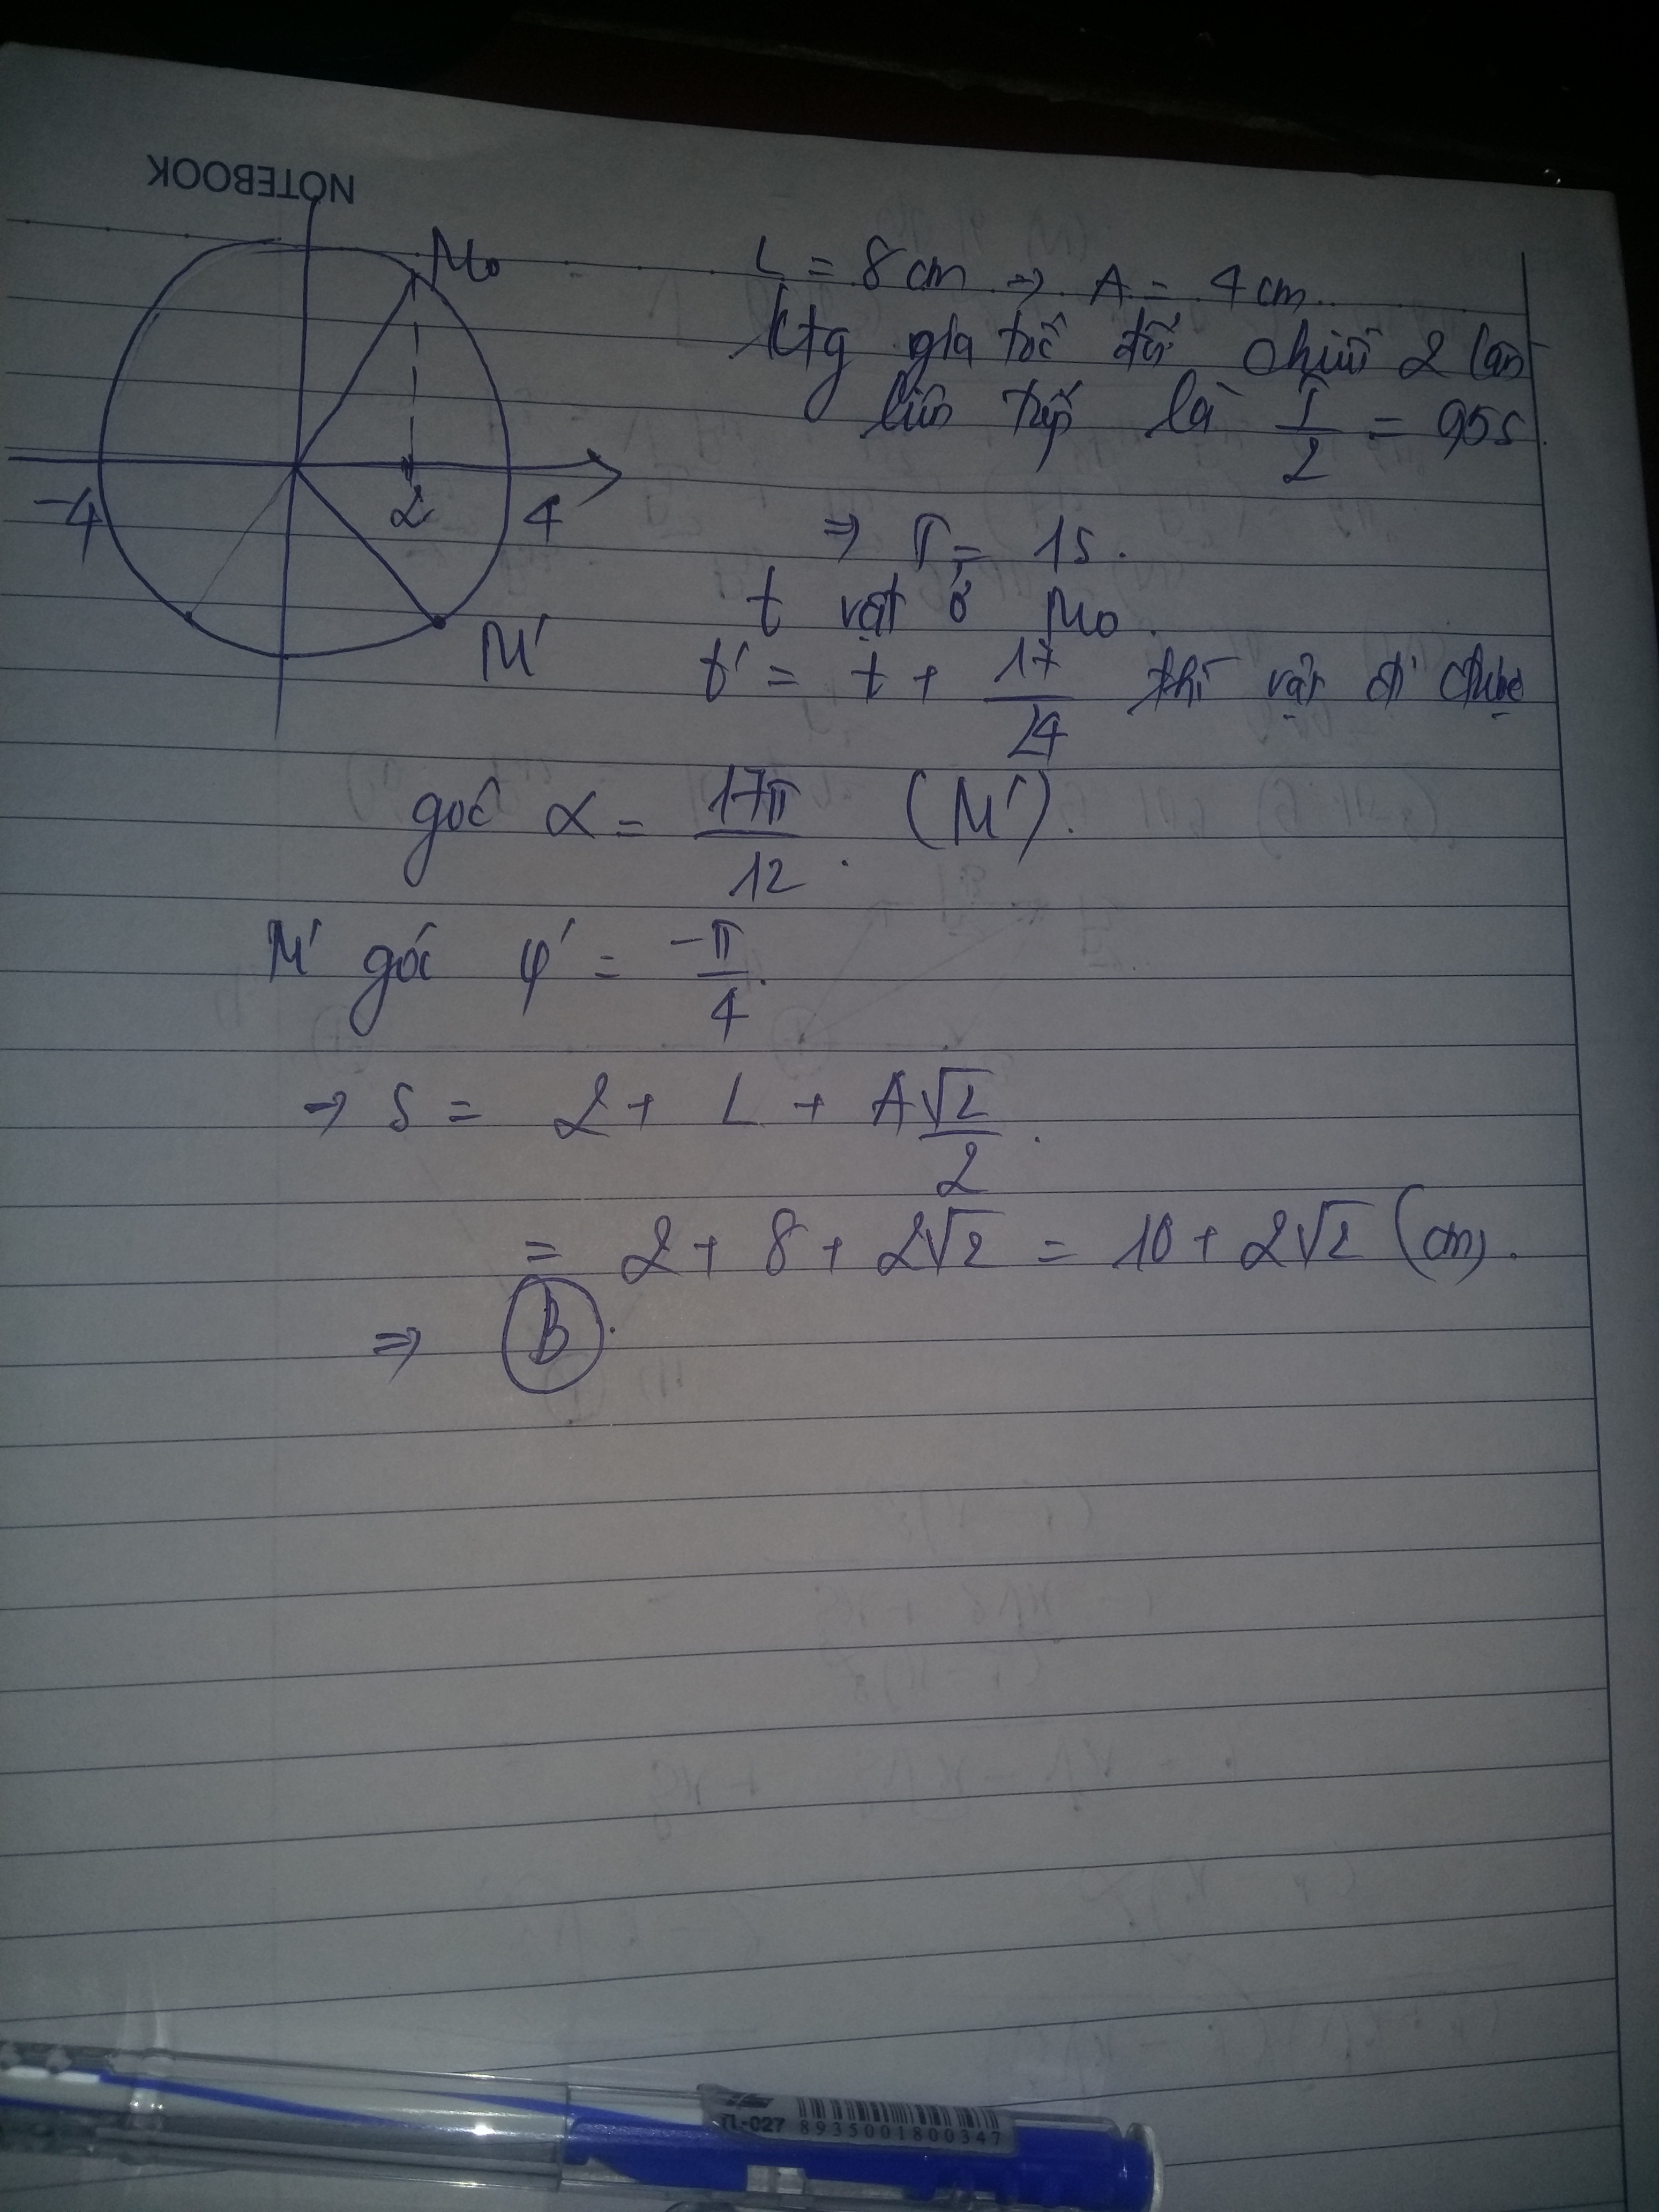 NOTEBOOK
M₀
-4
2
4
M'
L = 8 cm ⇒ A = 4 cm.
ktg gia tốc đổi chiều 2 lần
liên tiếp là T/2 = 0,5s.
⇒ T = 1s.
t vật ở M₀.
t' = t + 17/24 thì vật đi được
góc α = 17π/12. (M').
M' góc φ' = -π/4.
⇒ S = 2 + L + A√2/2.
= 2 + 8 + 2√2 = 10 + 2√2 (cm).
⇒ B.
TL-027
8935001800347